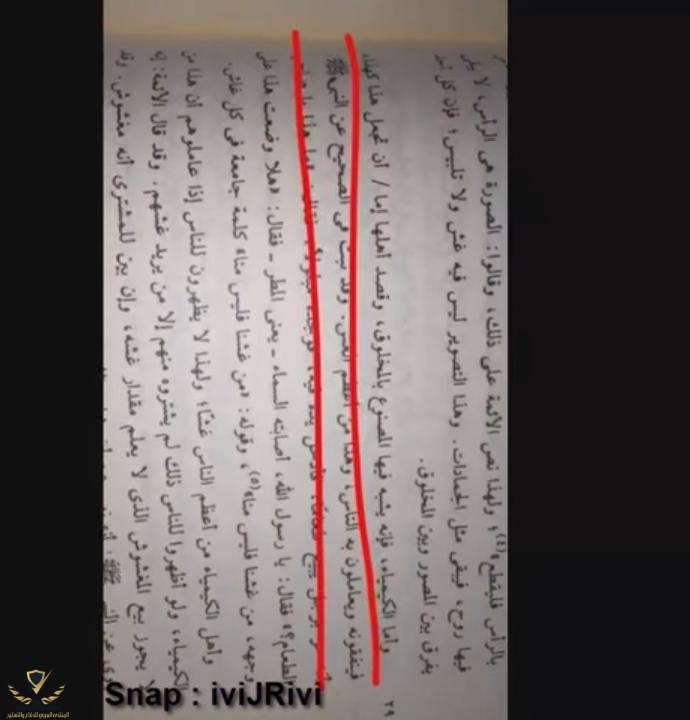 بالرأس فليقطع»(٤)؛ ولهذا نص الأئمة على ذلك، وقالوا: الصورة هى الرأس، لا يبقى
فيها روح، فيبقى مثل الجمادات. وهذا التصوير ليس فيه غش ولا تلبيس؛ فإن كل أحد
يفرق بين المصور وبين المخلوق.
٢٩
وأما الكيمياء، فإنه يشبه فيها المصنوع بالمخلوق، وقصد أهلها إما / أن تجعل هذا كهذا،
فينفقونه ويعاملون به الناس، وهذا من أعظم الغش. وقد ثبت فى الصحيح عن النبى ﷺ:
برجل يبيع طعامًا، فأدخل يده فيه، فوجده مبلولا، فقال: «ما هذا يا صاحب
الطعام؟» فقال: يا رسول الله، أصابته السماء ـ يعنى المطر ـ فقال: «هلا وضعت هذا على
وجهه، من غشنا فليس منا»(٥)، وقوله: «من غشنا فليس منا» كلمة جامعة فى كل غاش.
وأهل الكيمياء من أعظم الناس غشًا؛ ولهذا لا يظهرون للناس إذا عاملوهم أن هذا من
الكيمياء، ولو أظهروا للناس ذلك لم يشتروه منهم إلا من يريد غشهم. وقد قال الأئمة: إنه
لا يجوز بيع المغشوش الذى لا يعلم مقدار غشه، وإن بين للمشترى أنه مغشوش. وقد
عن النبى ﷺ
Snap : iviJRivi
المنتدى العربي للدفاع والتسليح